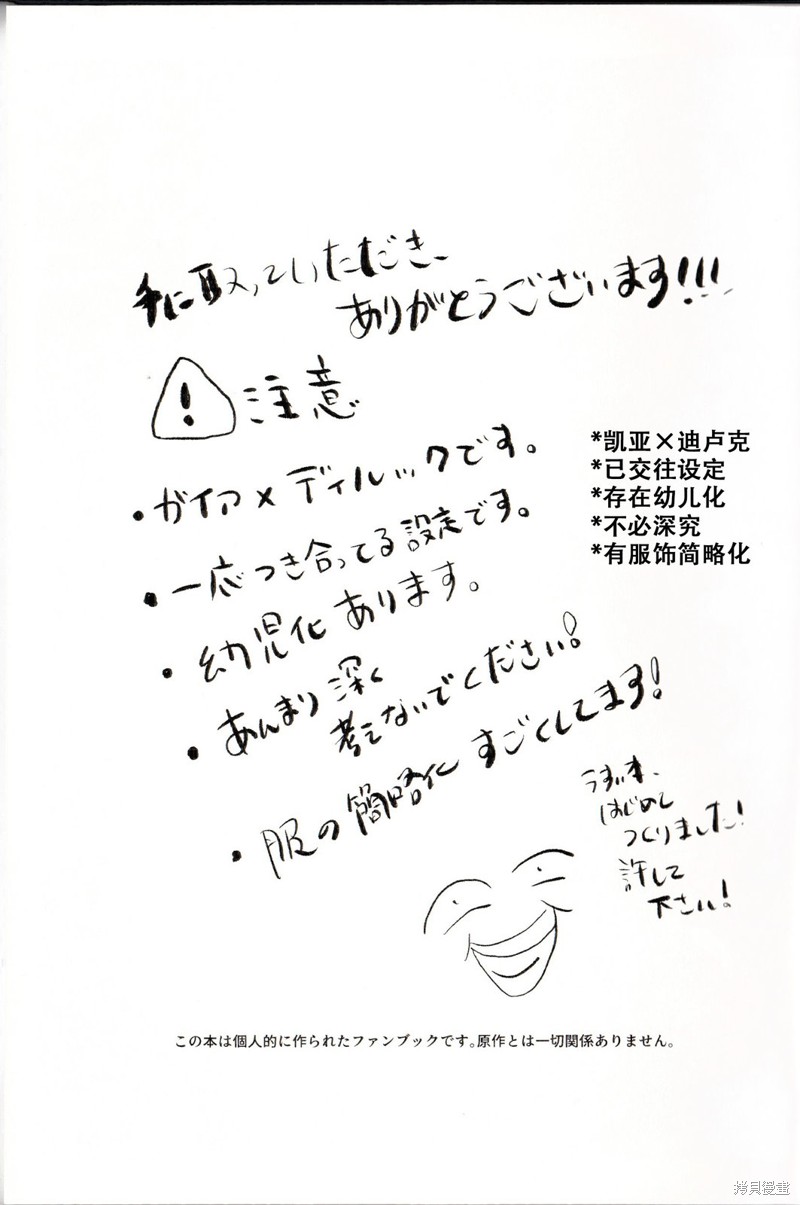 手に取っていただき、
ありがとうございます!!!
! 注意
・ガイア×ディルックです。
・一応つき合ってる設定です。
・幼児化あります。
・あんまり深く
考えないでください!
・服の簡略化すごくしてます!
*凯亚×迪卢克
*已交往设定
*存在幼儿化
*不必深究
*有服饰简略化
うすい本、
はじめて
つくりました!
許して
下さい!
この本は個人的に作られたファンブックです。原作とは一切関係ありません。
拷貝漫畫